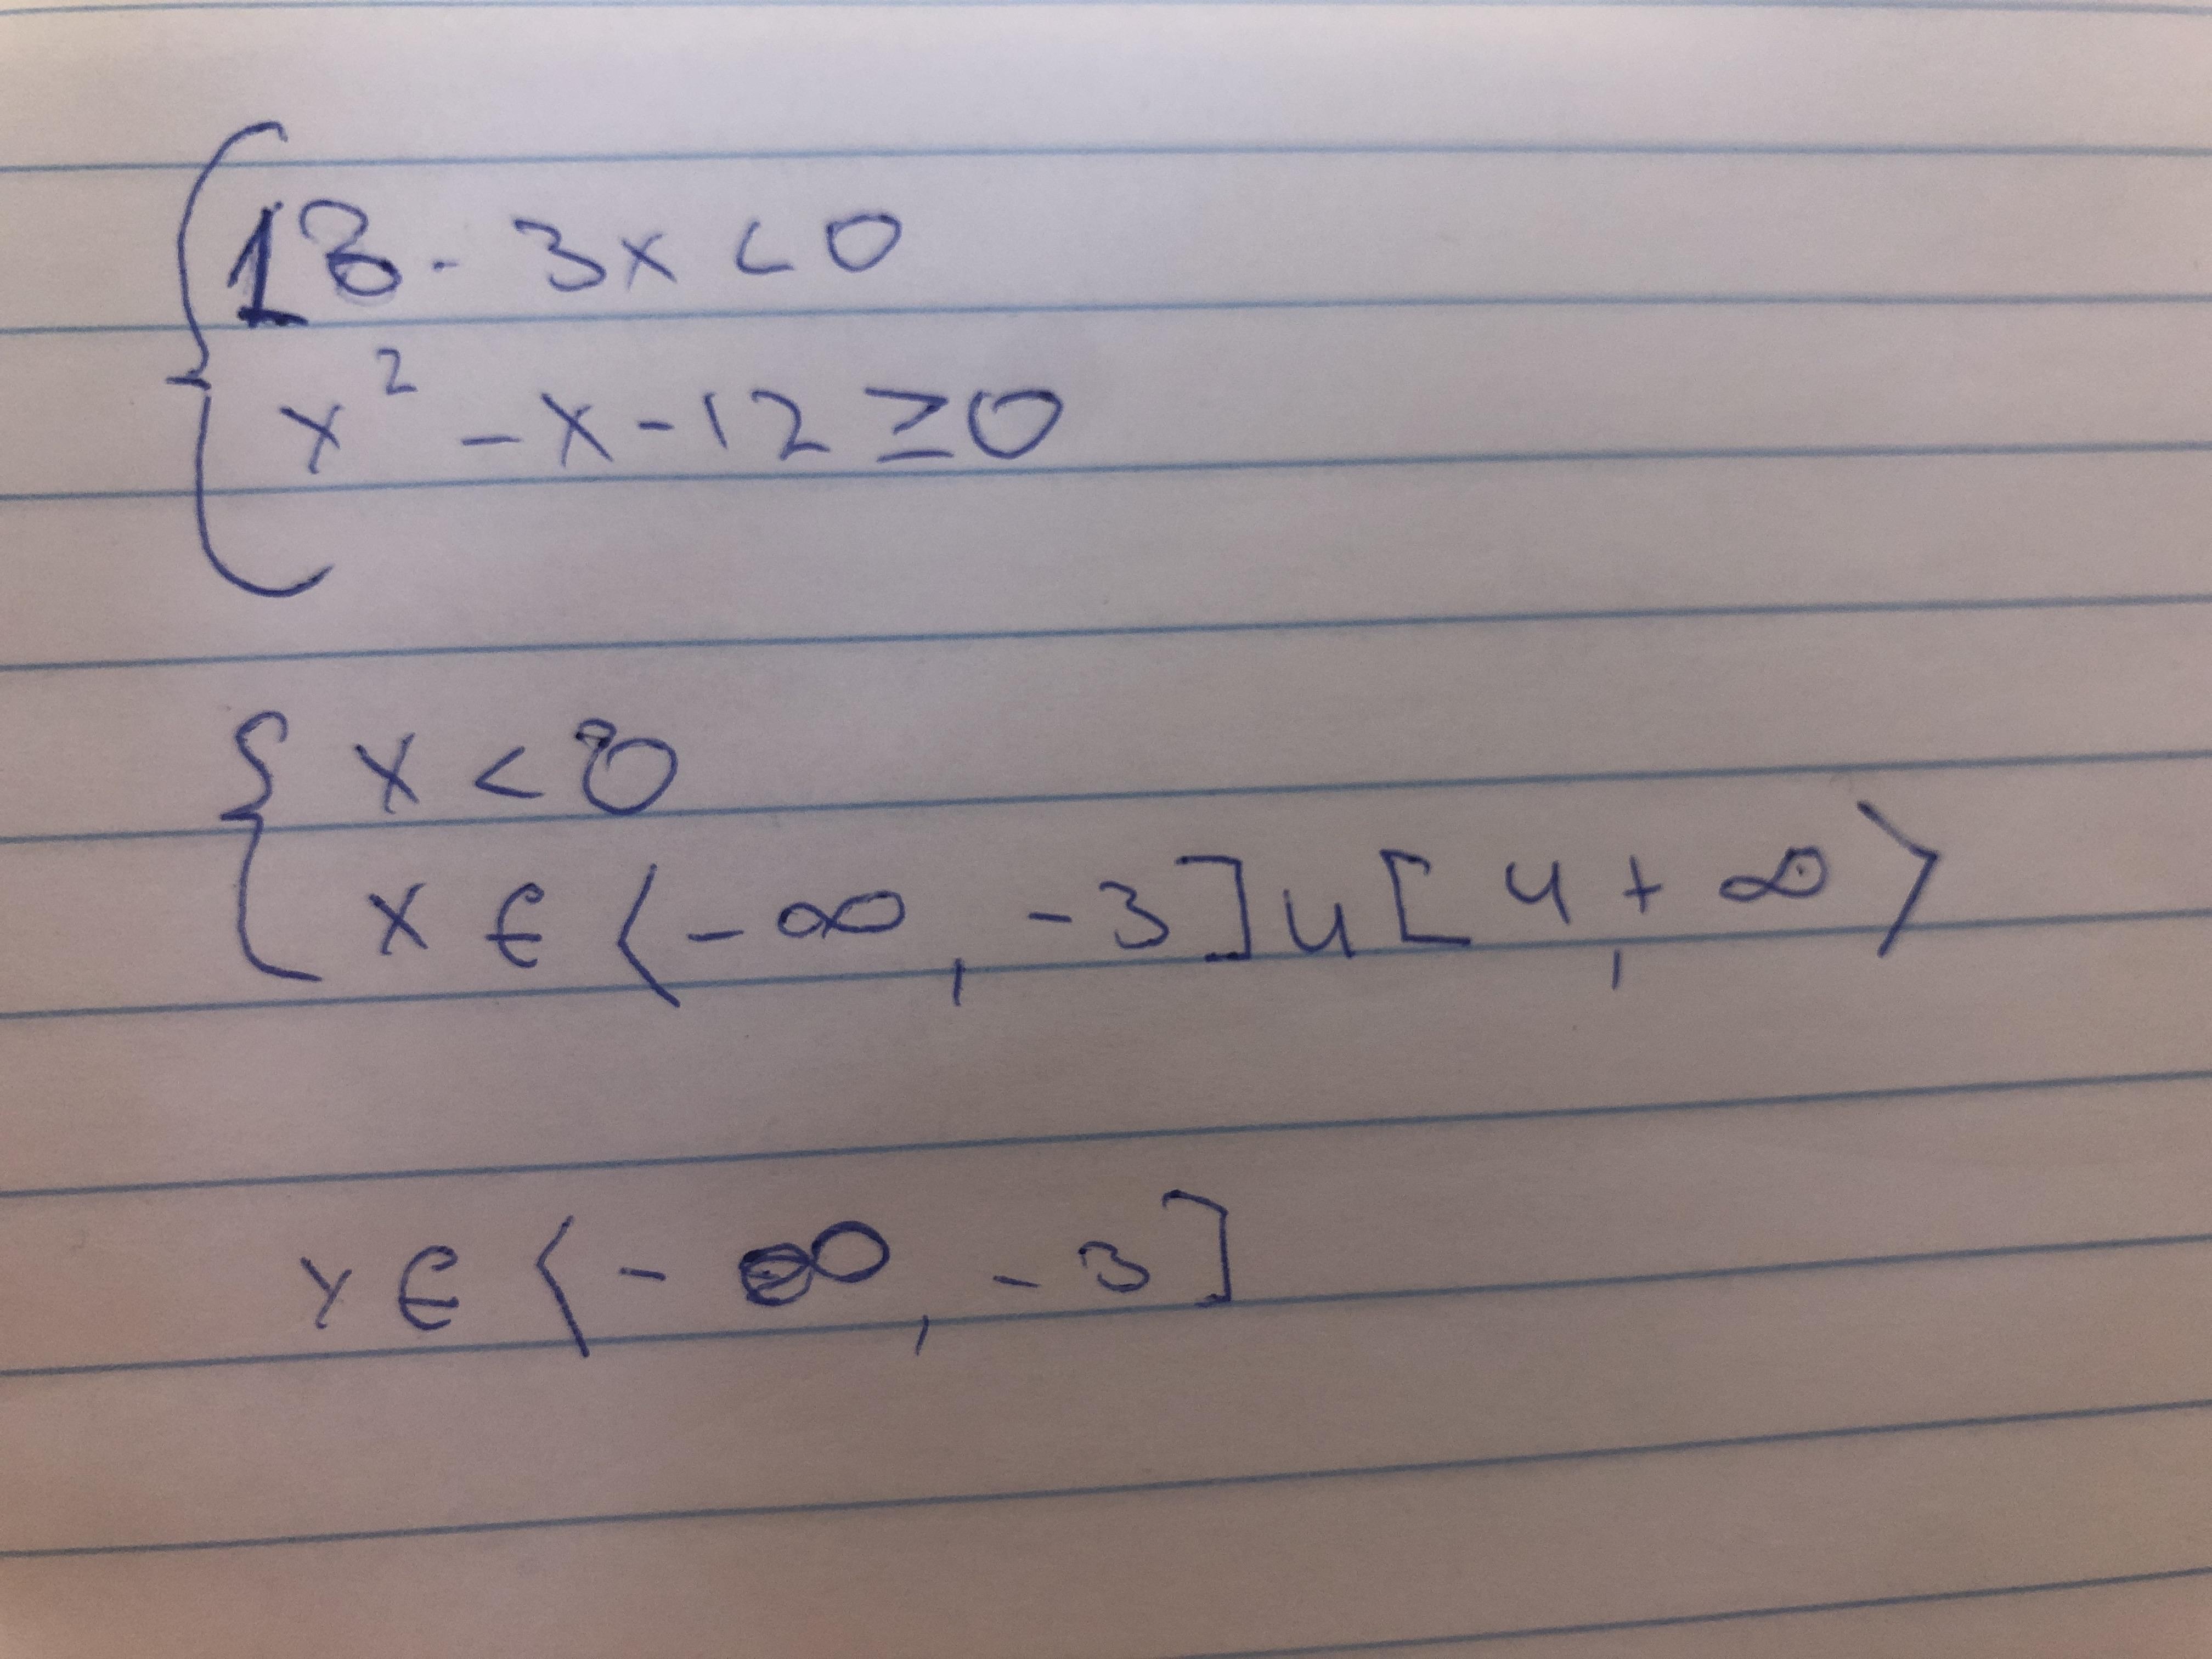 { 18 - 3x < 0
x² - x - 12 ≥ 0
{ x < 0
x ∈ ⟨-∞, -3] ∪ [4, +∞⟩
x ∈ ⟨-∞, -3]